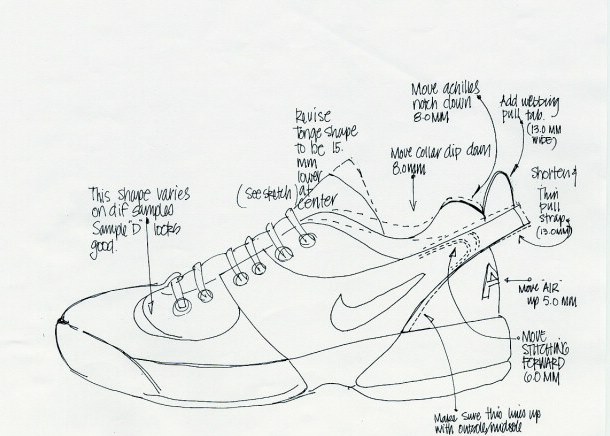 Move achilles
notch down
8.0MM
Add webbing
pull tab.
(13.0 MM
WIDE)
Revise
Tonge shape
TO be 15.
mm
lower
at
center
(See sketch)
Move collar dip down
8.0mm
Shorten &
Thin
pull
strap.
(13.0mm)
This shape varies
on dif samples
Sample "D" looks
good.
Move "AIR"
up 5.0 MM
A
MOVE
STITCHING
FORWARD
6.0 MM
Make sure this lines up
with outsole/midsole